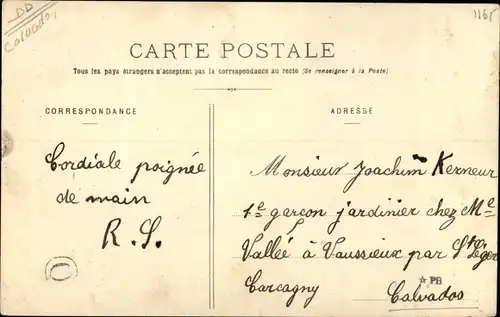 DD
Calvados
1165
CARTE POSTALE
Tous les pays étrangers n'acceptent pas la correspondance au recto (Se renseigner à la Poste)
CORRESPONDANCE
ADRESSE
Cordiale poignée
de main
R. S.
Monsieur Joachim Kerneur
1e garçon jardinier chez Me
Vallée à Vaussieux par St Léger
Carcagny
Calvados
☆ PB